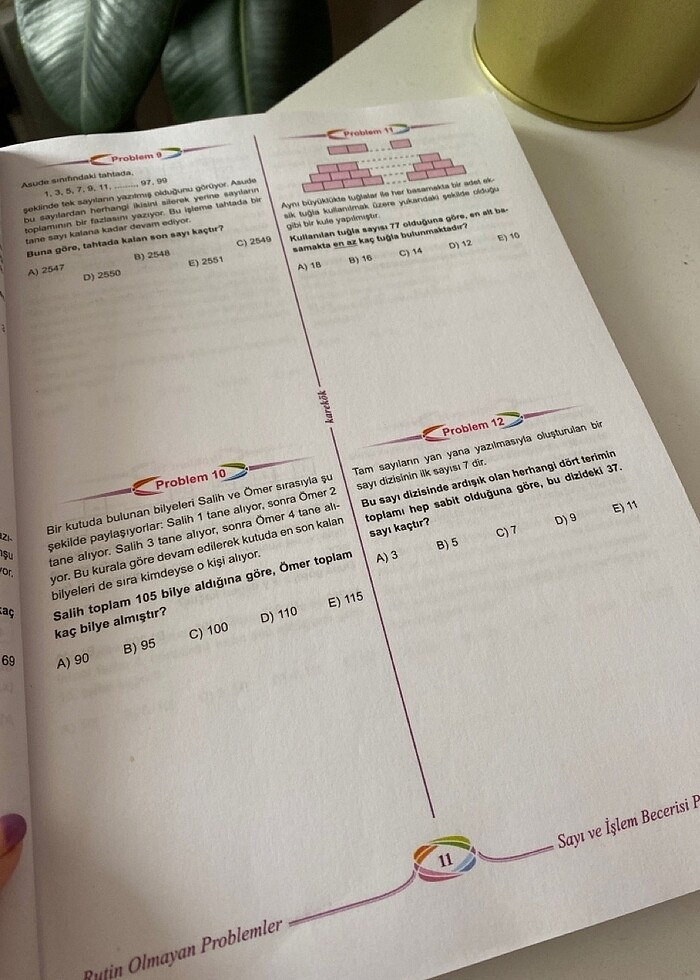 Problem 9
Asude sınıfındaki tahtada,
1, 3, 5, 7, 9, 11, ......... 97, 99
şeklinde tek sayıların yazılmış olduğunu görüyor. Asude
bu sayılardan herhangi ikisini silerek yerine sayıların
toplamının bir fazlasını yazıyor. Bu işleme tahtada bir
tane sayı kalana kadar devam ediyor.
Buna göre, tahtada kalan son sayı kaçtır?
A) 2547
B) 2548
C) 2549
D) 2550
E) 2551
Problem 10
Bir kutuda bulunan bilyeleri Salih ve Ömer sırasıyla şu
şekilde paylaşıyorlar: Salih 1 tane alıyor, sonra Ömer 2
tane alıyor. Salih 3 tane alıyor, sonra Ömer 4 tane alı-
yor. Bu kurala göre devam edilerek kutuda en son kalan
bilyeleri de sıra kimdeyse o kişi alıyor.
Salih toplam 105 bilye aldığına göre, Ömer toplam
kaç bilye almıştır?
A) 90
B) 95
C) 100
D) 110
E) 115
karekök
Problem 11
Aynı büyüklükte tuğlalar ile her basamakta bir adet ek-
sik tuğla kullanılmak üzere yukarıdaki şekilde olduğu
gibi bir kule yapılmıştır.
Kullanılan tuğla sayısı 77 olduğuna göre, en alt ba-
samakta en az kaç tuğla bulunmaktadır?
A) 18
B) 16
C) 14
D) 12
E) 10
Problem 12
Tam sayıların yan yana yazılmasıyla oluşturulan bir
sayı dizisinin ilk sayısı 7 dir.
Bu sayı dizisinde ardışık olan herhangi dört terimin
toplamı hep sabit olduğuna göre, bu dizideki 37.
sayı kaçtır?
A) 3
B) 5
C) 7
D) 9
E) 11
kaç
69
Rutin Olmayan Problemler
11
Sayı ve İşlem Becerisi P